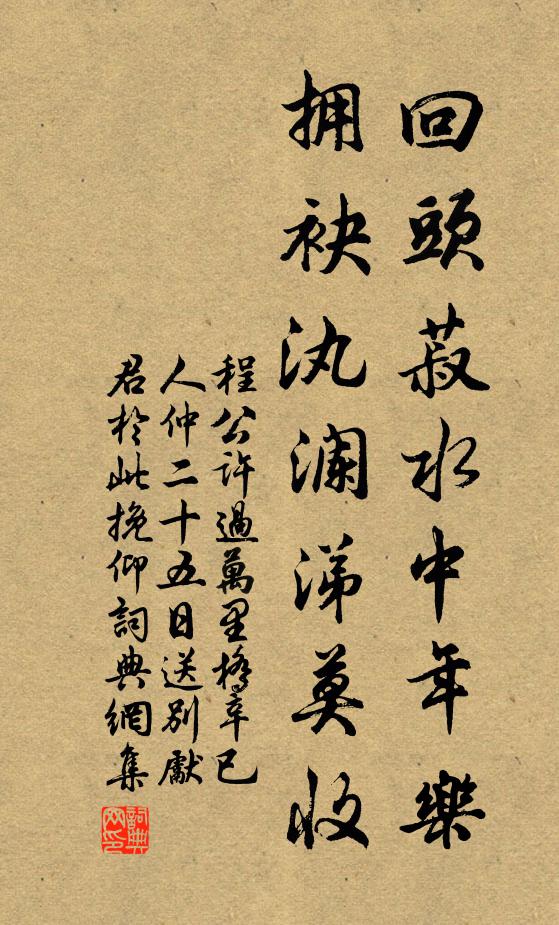 回頭菽水中年樂
拥袂汍澜涕莫收
程公許過萬里橋辛巳
人仲二十五日送别獻
君於此挽仰詞典網集
詞典网印